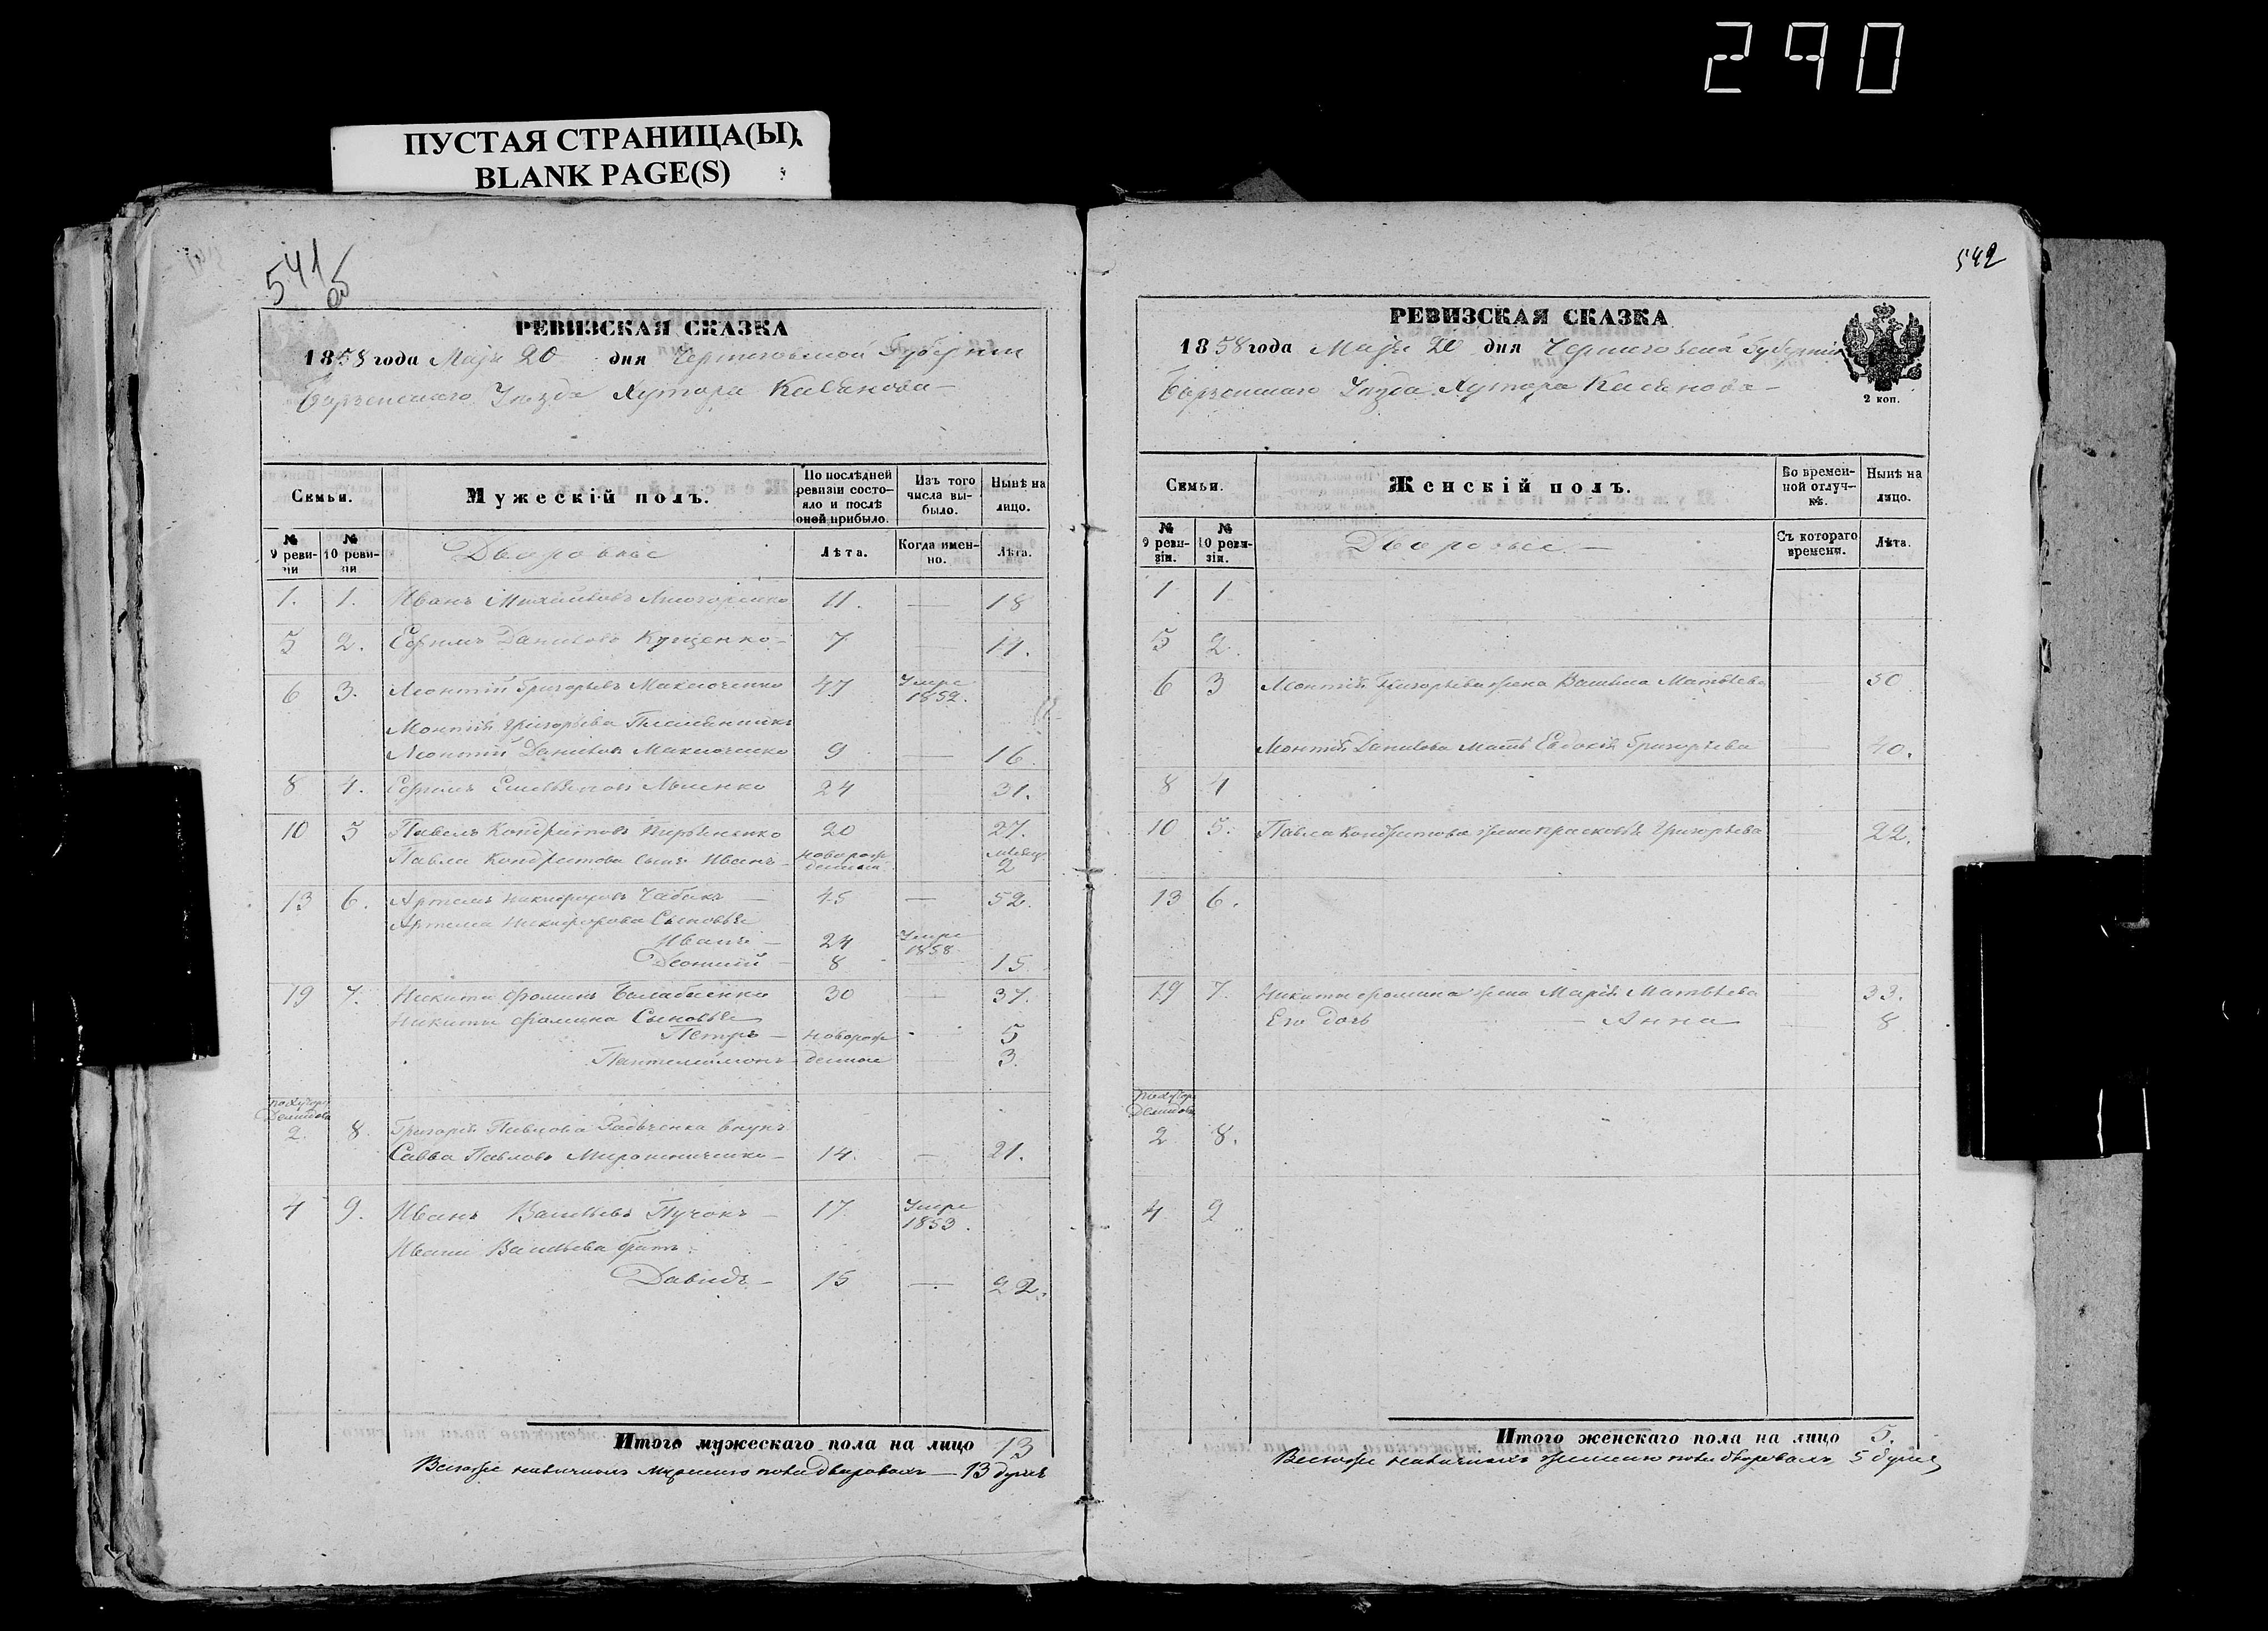 290
ПУСТАЯ СТРАНИЦА(Ы)
BLANK PAGE(S)
541 об
РЕВИЗСКАЯ СКАЗКА
1858 года Маія 20 дня Черниговской Губерніи
Борзенскаго Уѣзда Хутора
Семьи.
Мужескій полъ.
По послѣдней ревизіи состояло и послѣ оной прибыло.
Изъ того числа выбыло.
Нынѣ на лицо.
№ 9 ревизіи
№ 10 ревизіи
Дворовые
Лѣта.
Когда именно.
Лѣта.
1. 1. Иванъ Михайловъ 11. — 18
5 2. Ефимъ Даниловъ Кущенко — 7 — 14.
6 3. Леонтій Григорьевъ 47 Умре 1852.
Леонтія Григорьева Племянникъ
Леонтій Даниловъ 9 — 16.
8 4. Ефимъ 24 31.
10 5 Павелъ Кондратовъ 20 27.
Павла Кондратова сынъ Иванъ — новорожденный Мѣсяц. 2
13 6. Артемъ Никифоровъ Чабакъ — 45 — 52.
Артема Никифорова Сыновья
Иванъ — 24 Умре 1858
8 — 15
19 7. Никита Фоминъ 30 — 37.
Никиты Фомина Сыновья
Петръ — новорож 5
Пантелеймонъ — денные 3.
по хутору Демидова
2. 8. Григорія Павлова Радченка внукъ
Савва Павловъ Мирошниченко — 14. — 21.
4 9. Иванъ Васильевъ Пучокъ — 17 Умре 1853.
Ивана Васильева братъ
Давидъ — 15 — 22.
Итого мужескаго пола на лицо 13
мужеского пола дворовыхъ — 13 душъ
542
РЕВИЗСКАЯ СКАЗКА
1858 года Маія 20 дня Черниговской Губерніи
Борзенскаго Уѣзда Хутора
2 коп.
Семьи.
Женскій полъ.
Во временной отлучкѣ.
Нынѣ на лицо.
№ 9 ревизіи.
№ 10 ревизіи.
Дворовые —
Съ котораго времени.
Лѣта.
1 1
5 2.
6 3 Леонтія Григорьева жена Матвѣева 50
Леонтія Данилова мать Евдокія Григорьева — 40.
8 4
10 5. Павла Кондратова жена Прасковья Григорьева 22.
13 6.
19 7. Никиты Фомина жена Марія Матвѣева 33.
Его дочь — Анна 8
по хутору Демидова
2 8.
4 9
Итого женскаго пола на лицо 5.
женского пола дворовыхъ 5 душъ